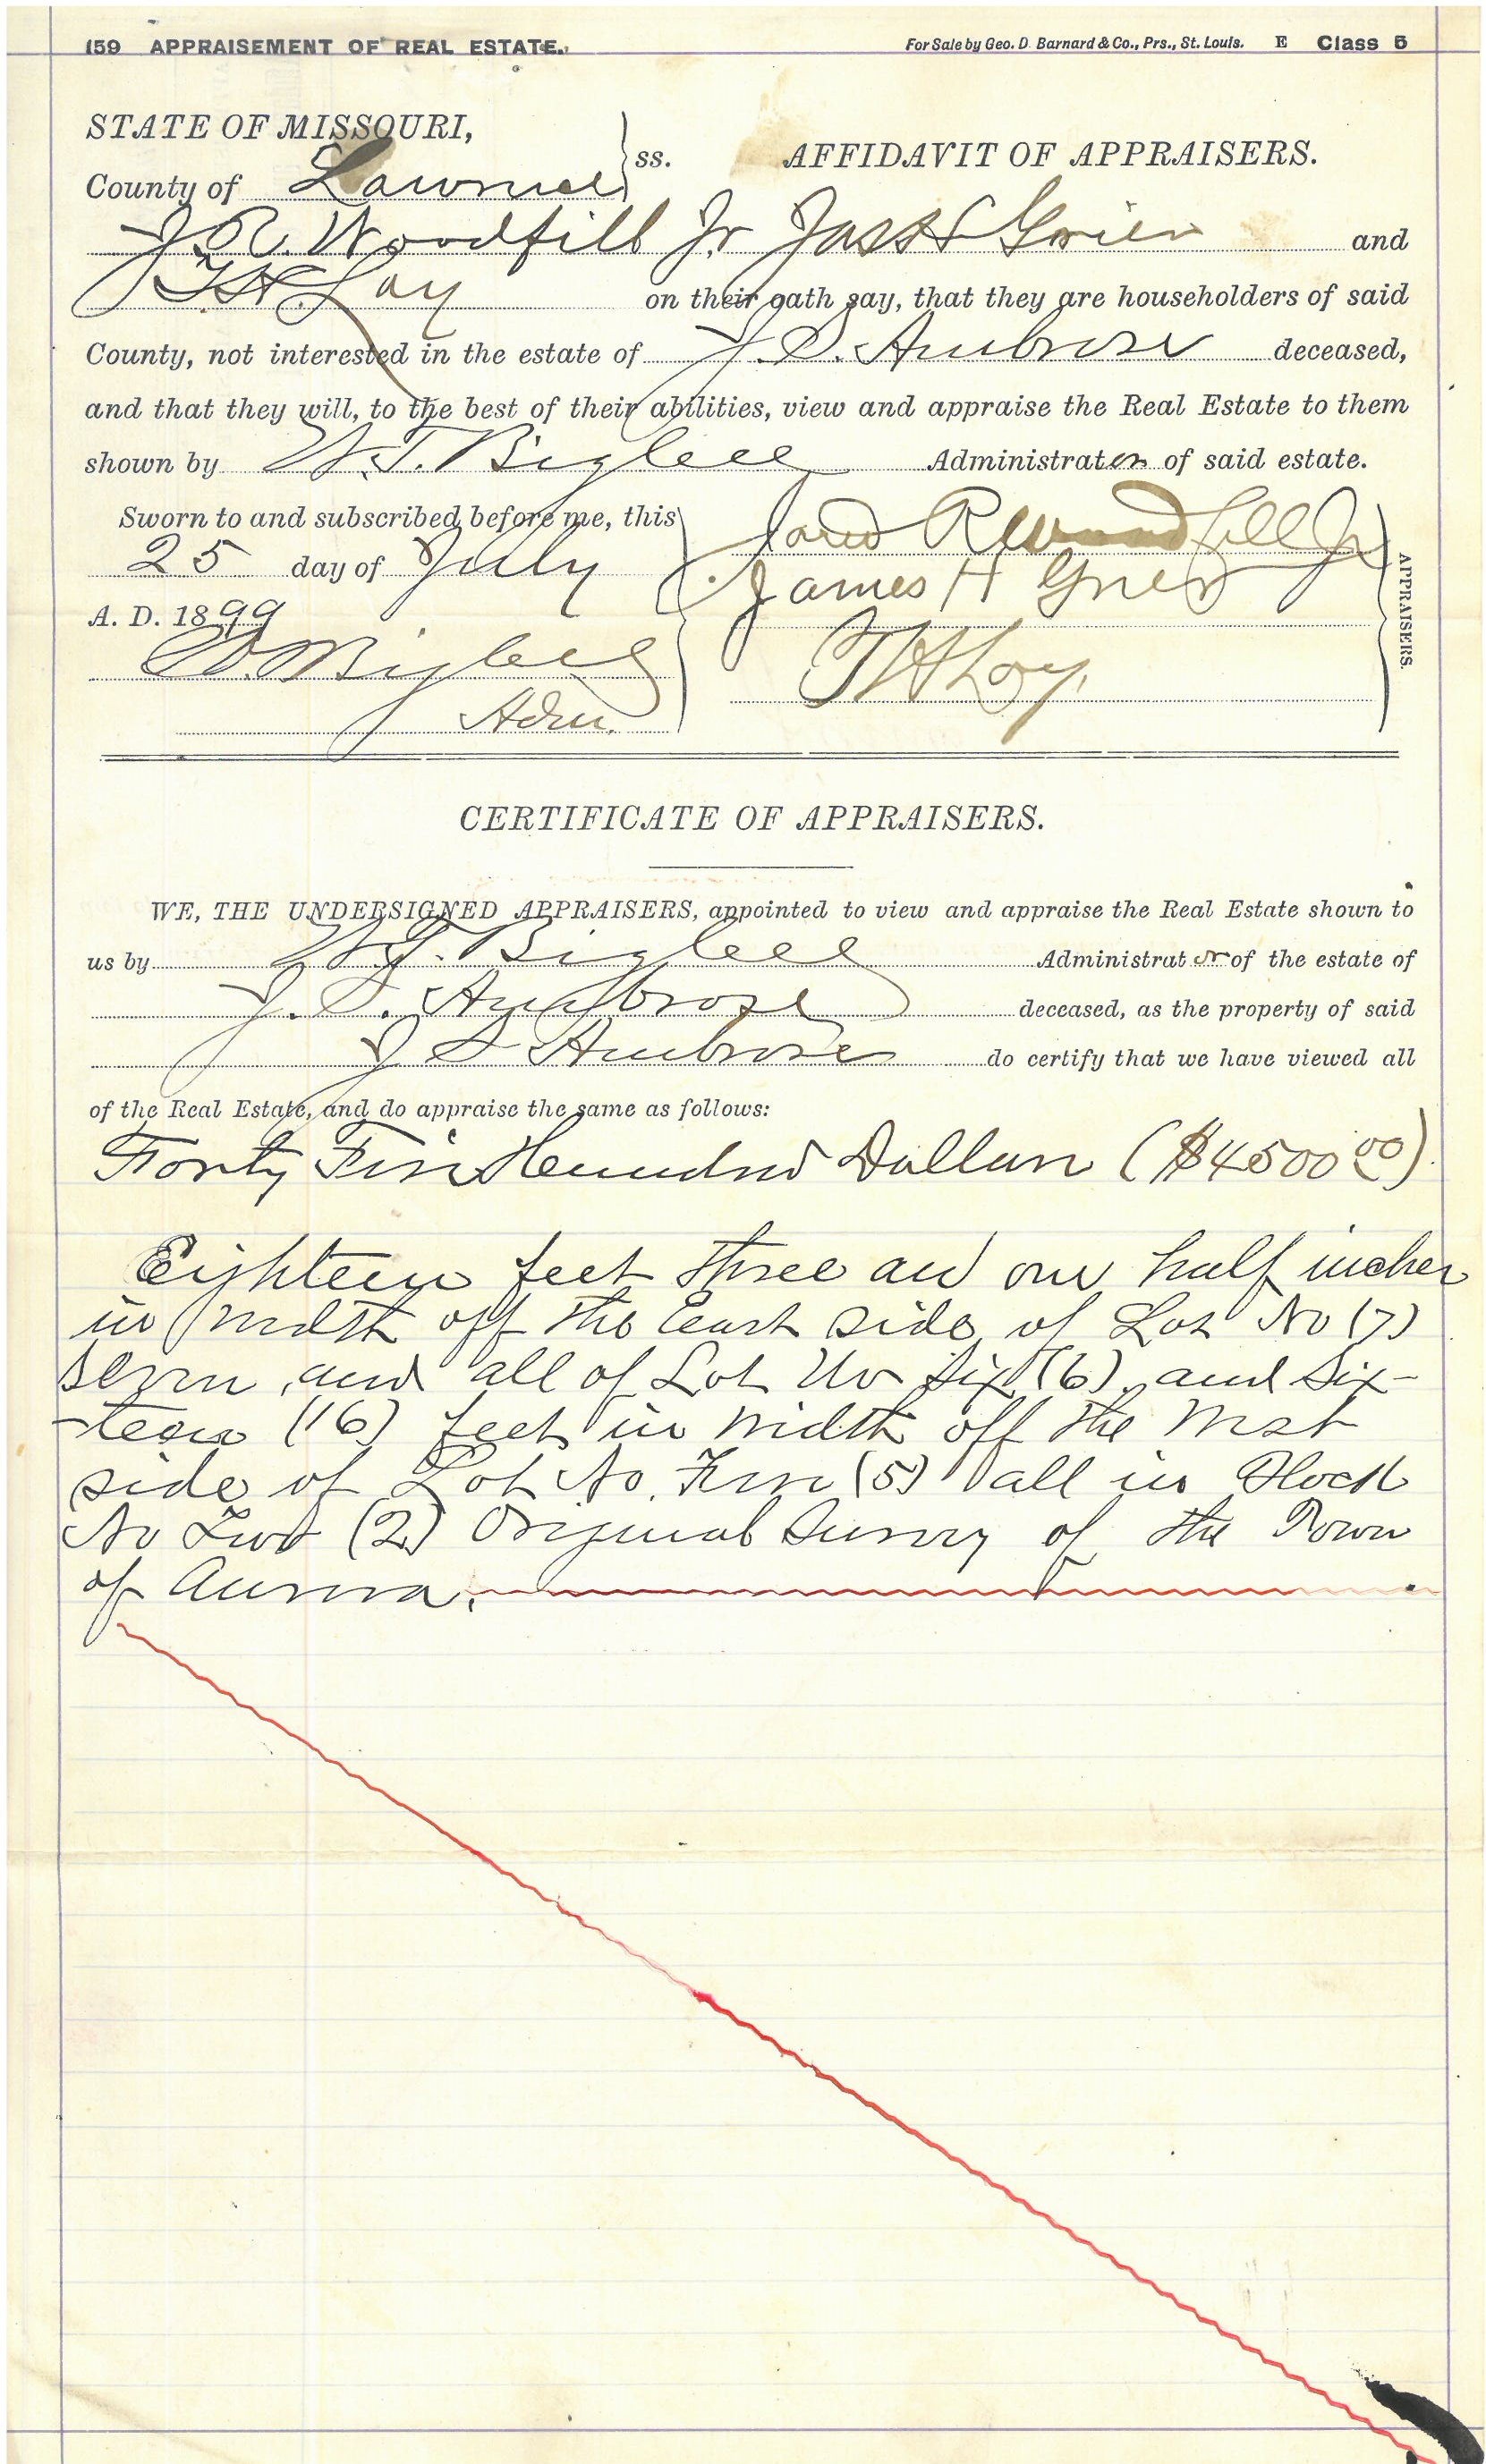 159 APPRAISEMENT OF REAL ESTATE. For Sale by Geo. D. Barnard & Co., Prs., St. Louis. E Class 5
STATE OF MISSOURI,
County of Lawrence ss. AFFIDAVIT OF APPRAISERS.
J. R. Woodfill Jr Jas H Grier and
T H. Loy on their oath say, that they are householders of said
County, not interested in the estate of J. S. Ambrose deceased,
and that they will, to the best of their abilities, view and appraise the Real Estate to them
shown by W. T. Bigbee Administrator of said estate.
Sworn to and subscribed before me, this
25 day of July
A. D. 1899
Bigbee
Adm.
Jared R Woodfill Jr
James H Grier
T H Loy.
APPRAISERS.
CERTIFICATE OF APPRAISERS.
WE, THE UNDERSIGNED APPRAISERS, appointed to view and appraise the Real Estate shown to
us by W. T. Bigbee Administrator of the estate of
J. S. Ambrose deceased, as the property of said
J S Ambrose do certify that we have viewed all
of the Real Estate, and do appraise the same as follows:
Forty Five Hundred Dollars ($4500 00).
Eighteen feet three and one half inches
in width off the East side of Lot No (7)
seven, and all of Lot No six (6), and six-
-teen (16) feet in width off the West
side of Lot No. Five (5) all in Block
No Two (2) Original Survey of the Town
of Aurora.